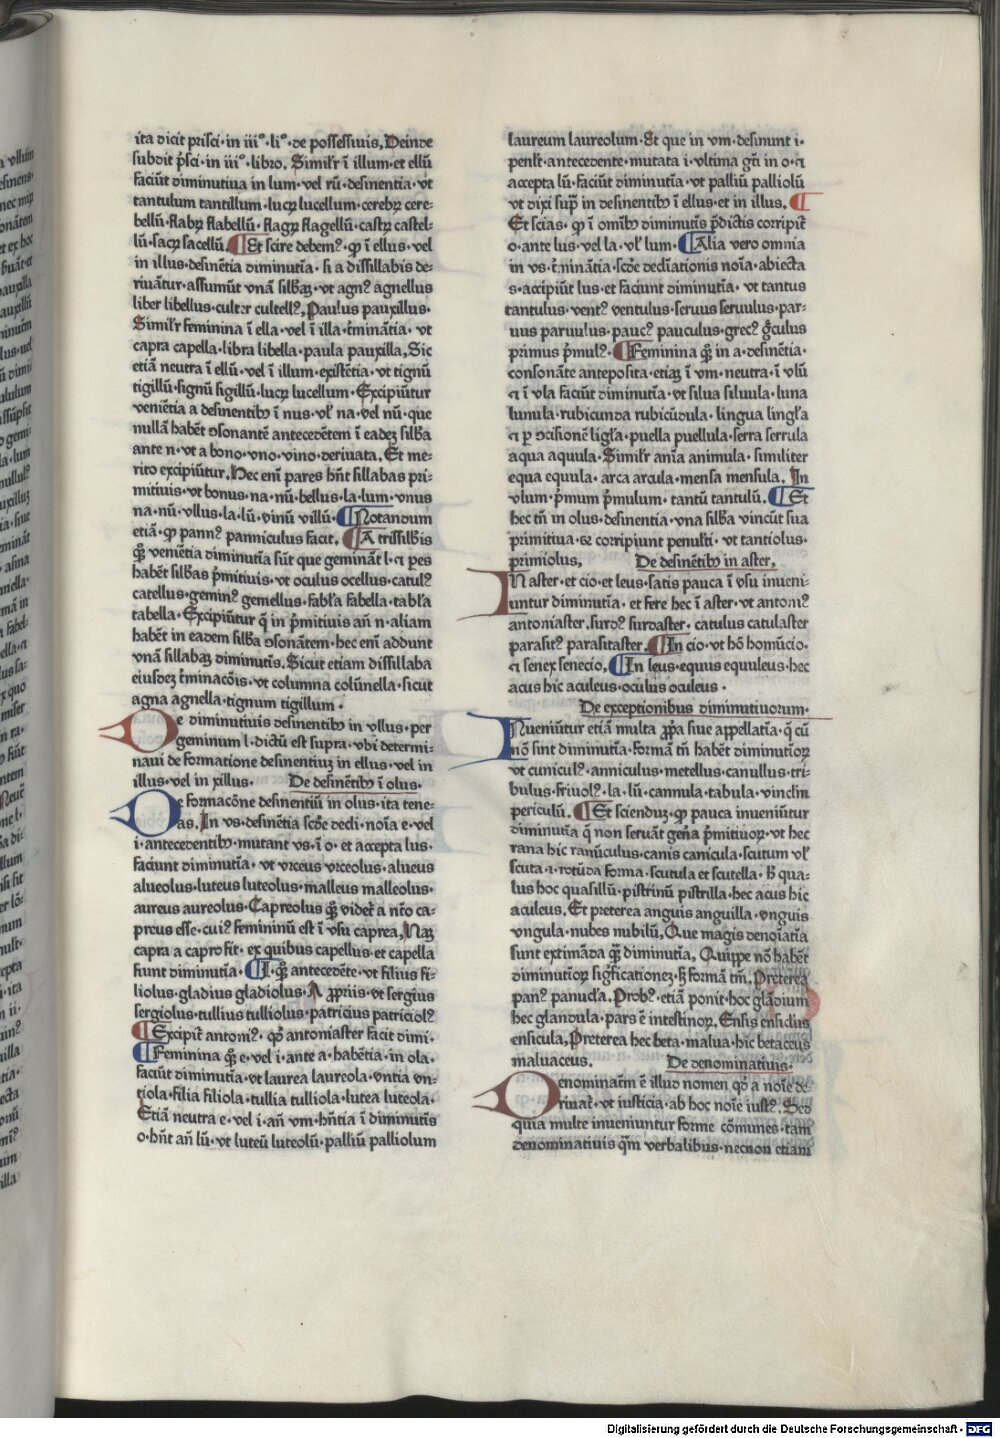 ita dicit prisci·in iii°·li°·de possessiuis, Deinde
subdit p̄sci·in iii°·libro. Simil'r ī illum·et ellū
faciūt diminutiua in lum·vel rū·desinentia·vt
tantulum tantillum·lucꝝ lucellum·cerebꝝ cere-
bellū·flabꝝ flabellū·flagꝝ flagellū·castꝝ castel-
lū·sacꝝ sacellū. ¶Et scire debemꝰ·ꝙ ī ellus·vel
in illus·desinētia diminutīa·si a dissillabis de-
riuātur·assumūt vnā sillbā·vt agnꝰ agnellus
liber libellus·culter cultellꝰ, Paulus pauxillus·
Simil'r feminina ī ella·vel ī illa·t̄minātia·vt
capra capella·libra libella·paula pauxilla, Sic
etiā neutra ī ellū·vel ī illum·existētia·vt tignū
tigillū·signū sigillū·lucꝝ lucellum·Excipiūtur
veniētia a desinentibꝫ ī nus·vl' na·vel nū·que
nullā habēt ꝯsonantē antecedētem ī eadeꝫ sillba
ante n·vt a bono·vno·vino·deriuata. Et me-
rito excipiūtur. Nec eni᷒ pares hn̄t sillabas pri-
mitiuis·vt bonus·na·nū·bellus·la·lum·vnus
na·nū·vllus·la·lū·vinū villū·¶Notandum
etiā·ꝙ pannꝰ panniculus facit. ¶A trissill'bis
q̄ꝫ veniētia diminutīa sūt que gemināt l·⁊ pes
habēt sill'bas p̄mitiuis·vt oculus ocellus·catulꝰ
catellus·geminꝰ gemellus·fabl'a fabella·tabl'a
tabella·Excipiūtur q̄ in p̄mitiuis an̄ n·aliam
habēt in eadem sill'ba ꝯsonātem·hec eni᷒ addunt
vnā sillabaꝫ diminutīs. Sicut etiam dissillaba
eiusdeꝫ t̄minacōis·vt columna colūnella·sicut
agna agnella·tignum tigillum·
De diminutiuis desinentibꝫ in vllus·per
geminum l·dictū est supra·vbi determi-
naui de formatione desinentiuꝫ in ellus·vel in
illus·vel in xillus. De desinētibꝫ ī olus·
De formacōne desinentiū in olus·ita tene-
as. In vs·desinētia scd̄e decli·noīa e·vel
i·antecedentibꝫ·mutant vs·ī o·et accepta lus·
faciunt diminutīa·vt vrceus vrceolus·alueus
alueolus·luteus luteolus·malleus malleolus·
aureus aureolus·Capreolus q̄ꝫ videt̄ a nr̄o ca-
preus esse·cuiꝰ femininū est ī vsu caprea, Naꝫ
capra a capro fit·ex quibus capellus·et capella
fiunt diminutīa·¶I·q̄ꝫ antecedēte·vt filius fi-
liolus·gladius gladiolus·A ꝓpriis·vt sergius
sergiolus·tullius tulliolus·patricius patriciolꝰ
¶Excipit̄ antoniꝰ·qd̄ antoniaster facit dimi·
¶Feminina q̄ꝫ e·vel i·ante a·habētia·in ola·
faciūt diminutīa·vt laurea laureola·vntia vn-
tiola·filia filiola·tullia tulliola·lutea luteola·
Etiā neutra e·vel i·an̄ vm·hn̄tia ī diminutīs
o·hn̄t an̄ lū·vt luteū luteolū·palliū palliolum
laureum laureolum·Et que in vm·desinunt i·
penlt̄·antecedente·mutata i·vltima gn̄i in o·⁊
accepta lū·faciūt diminutīa·vt palliū palliolū
vt dixi sup̄ in desinentibꝫ ī ellus·et in illus. ¶
Et scias·ꝙ ī om̄ibꝫ diminutīs p̄dictis corripit̄
o·ante lus·vel la·vl' lum·¶Alia vero omnia
in vs·t̄minātia·scd̄e declīationis noīa·abiecta
s·accipiūt lus·et faciunt diminutīa·vt tantus
tantulus·ventꝰ ventulus·seruus seruulus·par-
uus paruulus·paucꝰ pauculus·grecꝰ ḡculus
primus p̄mulꝰ·¶Feminina q̄ꝫ in a·desinētia·
consonāte anteposita·etiaꝫ ī vm·neutra·ī vlū
⁊ ī vla faciūt diminutīa·vt silua siluula·luna
lunula·rubicunda rubicūdula·lingua lingl'a
⁊ ꝑ ꝯcisionē ligl'a·puella puellula·serra serrula
aqua aquula·Simil'r anīa animula·similiter
equa equula·arca arcula·mensa mensula. In
vlum·p̄mum p̄mulum·tantū tantulū·¶Et
hec tn̄ in olus·desinentia·vna sill'ba vincūt sua
primitiua·& corripiunt penultī·vt tantiolus·
primiolus, De desinētibꝫ in aster,
In aster·et cio·et leus·satis pauca ī vsu inueni-
untur diminutīa·et fere hec ī aster·vt antoniꝰ
antoniaster·surdꝰ surdaster·catulus catulaster
parasitꝰ parasitaster. ¶In cio·vt hō homūcio·
⁊ senex senecio, ¶In leus·equus equuleus·hec
acus hic aculeus·oculus oculeus·
De exceptionibus diminutiuorum·
Inueniūtur etiā multa ꝓp̄a siue appellatīa·q̄ cū
nō sint diminutīa·formā tn̄ habēt diminutioꝝ
vt cuniculꝰ·anniculus·metellus·canullus·tri-
bulus·friuolꝰ·la·lū·cannula·tabula·vinclm̄
periculū. ¶Et sciendūꝫ·ꝙ pauca inueniūtur
diminutīa q̄ non seruāt geña p̄mitiuoꝝ·vt hec
rana hic ranūculus·canis canicula·scutum vl'
scuta·i·rotūda forma·scutula et scutella·ħ qua-
lus hoc quasillū·pistrinū pistrilla·hec acus hic
aculeus. Et preterea anguis anguilla·vnguis
vngula·nubes nubilū, Que magis denoīatīa
sunt extimāda q̄ꝫ diminutīa, Quippe nō habēt
diminutioꝝ sigficationeꝫ·ꝫ formā tm̄. Preterea
panꝰ panucl'a. Probꝰ·etiā ponit·hoc gladium
hec glandula·pars ē intestinoꝝ. Ensis ensiclus
ensicula, Preterea hec beta·malua·hic betaceus
maluaceus. De denominatiuis·
Denominatm̄ ē illud nomen qd̄ a noīe de-
riuat̄·vt iusticia·ab hoc noīe iustꝰ. Sed
quia multe inueniuntur forme cōmunes·tam
denominatiuis q̄m verbalibus·necnon etiam
Digitalisierung gefördert durch die Deutsche Forschungsgemeinschaft - DFG